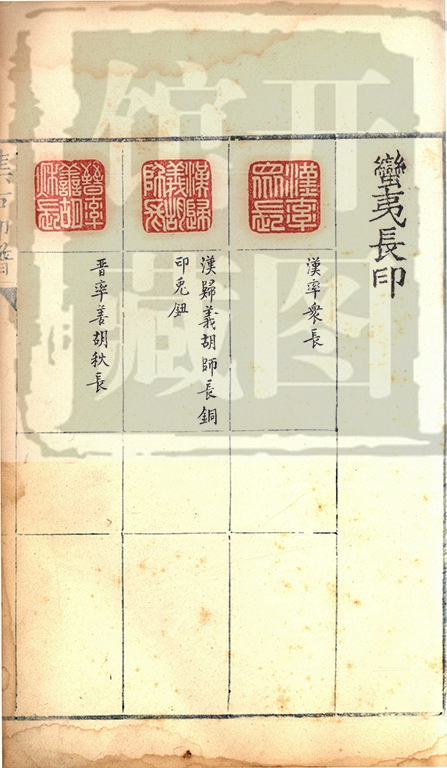 蠻夷長印
漢率衆長
漢率衆長
漢歸義胡師長
漢歸義胡師長銅
印兎鈕
晉率善胡秋長
晋率善胡秋長
开图
馆藏